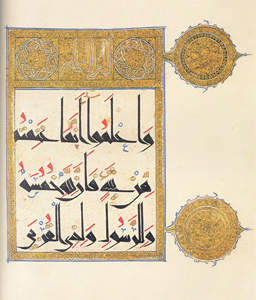 وَاعلموا أنما غنمتم
من شيء فأن لله خمسه
وللرسول ولذي القربى